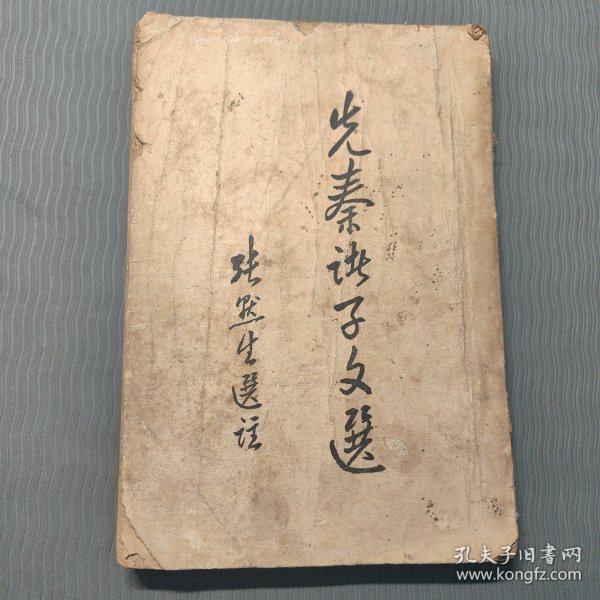 先秦诸子文選
张默生選註
孔夫子旧書网
www.kongfz.com